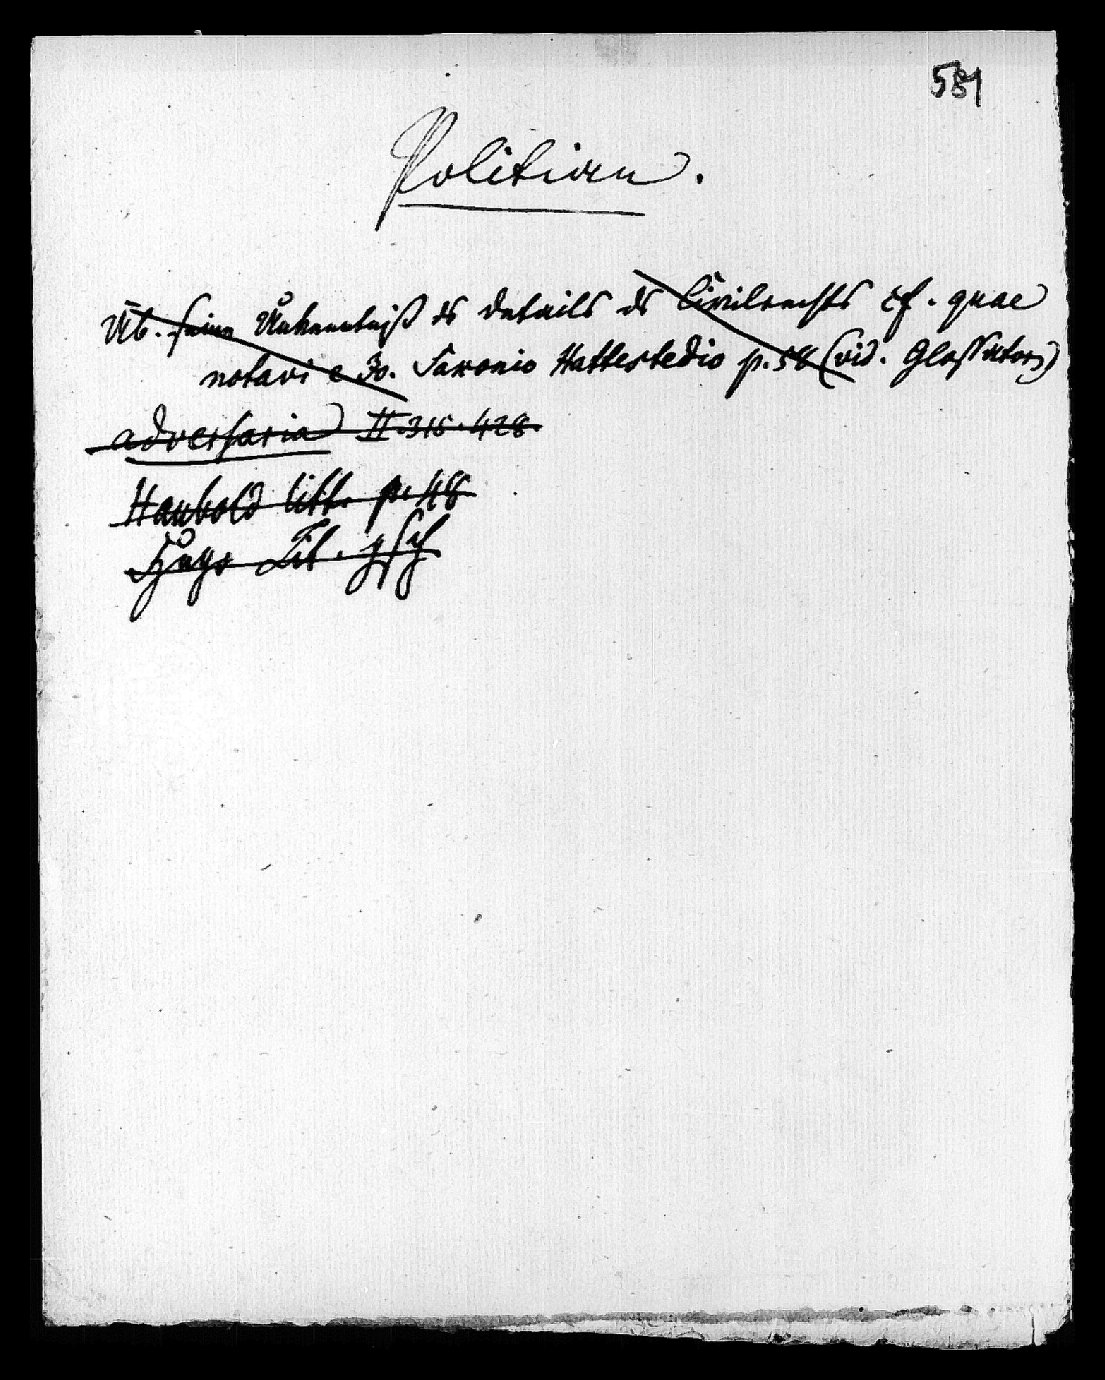 581
Politian.
Üb. seine Unkenntniß ds details ds Civilrechts cf. quae
notavi e Jo. Saxonio Hattestedio p. 58 (vid. Glossatoren)
adversaria II. 315. 428.
Haubold litt. p. 48
Hugo Lit. gsch